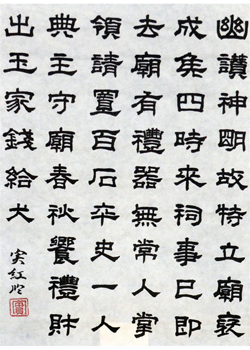 幽讚神明故特立廟褒
成侯四時來祠事已即
去廟有禮器無常人掌
領請置百石卒史一人
典主守廟春秋饗禮財
出王家錢給犬